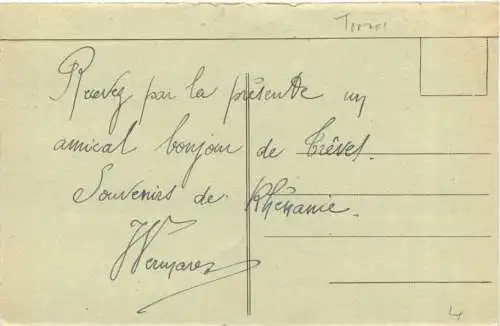 Recevez par la présente un
amical bonjour de Trêves.
Souvenirs de Rhénanie.